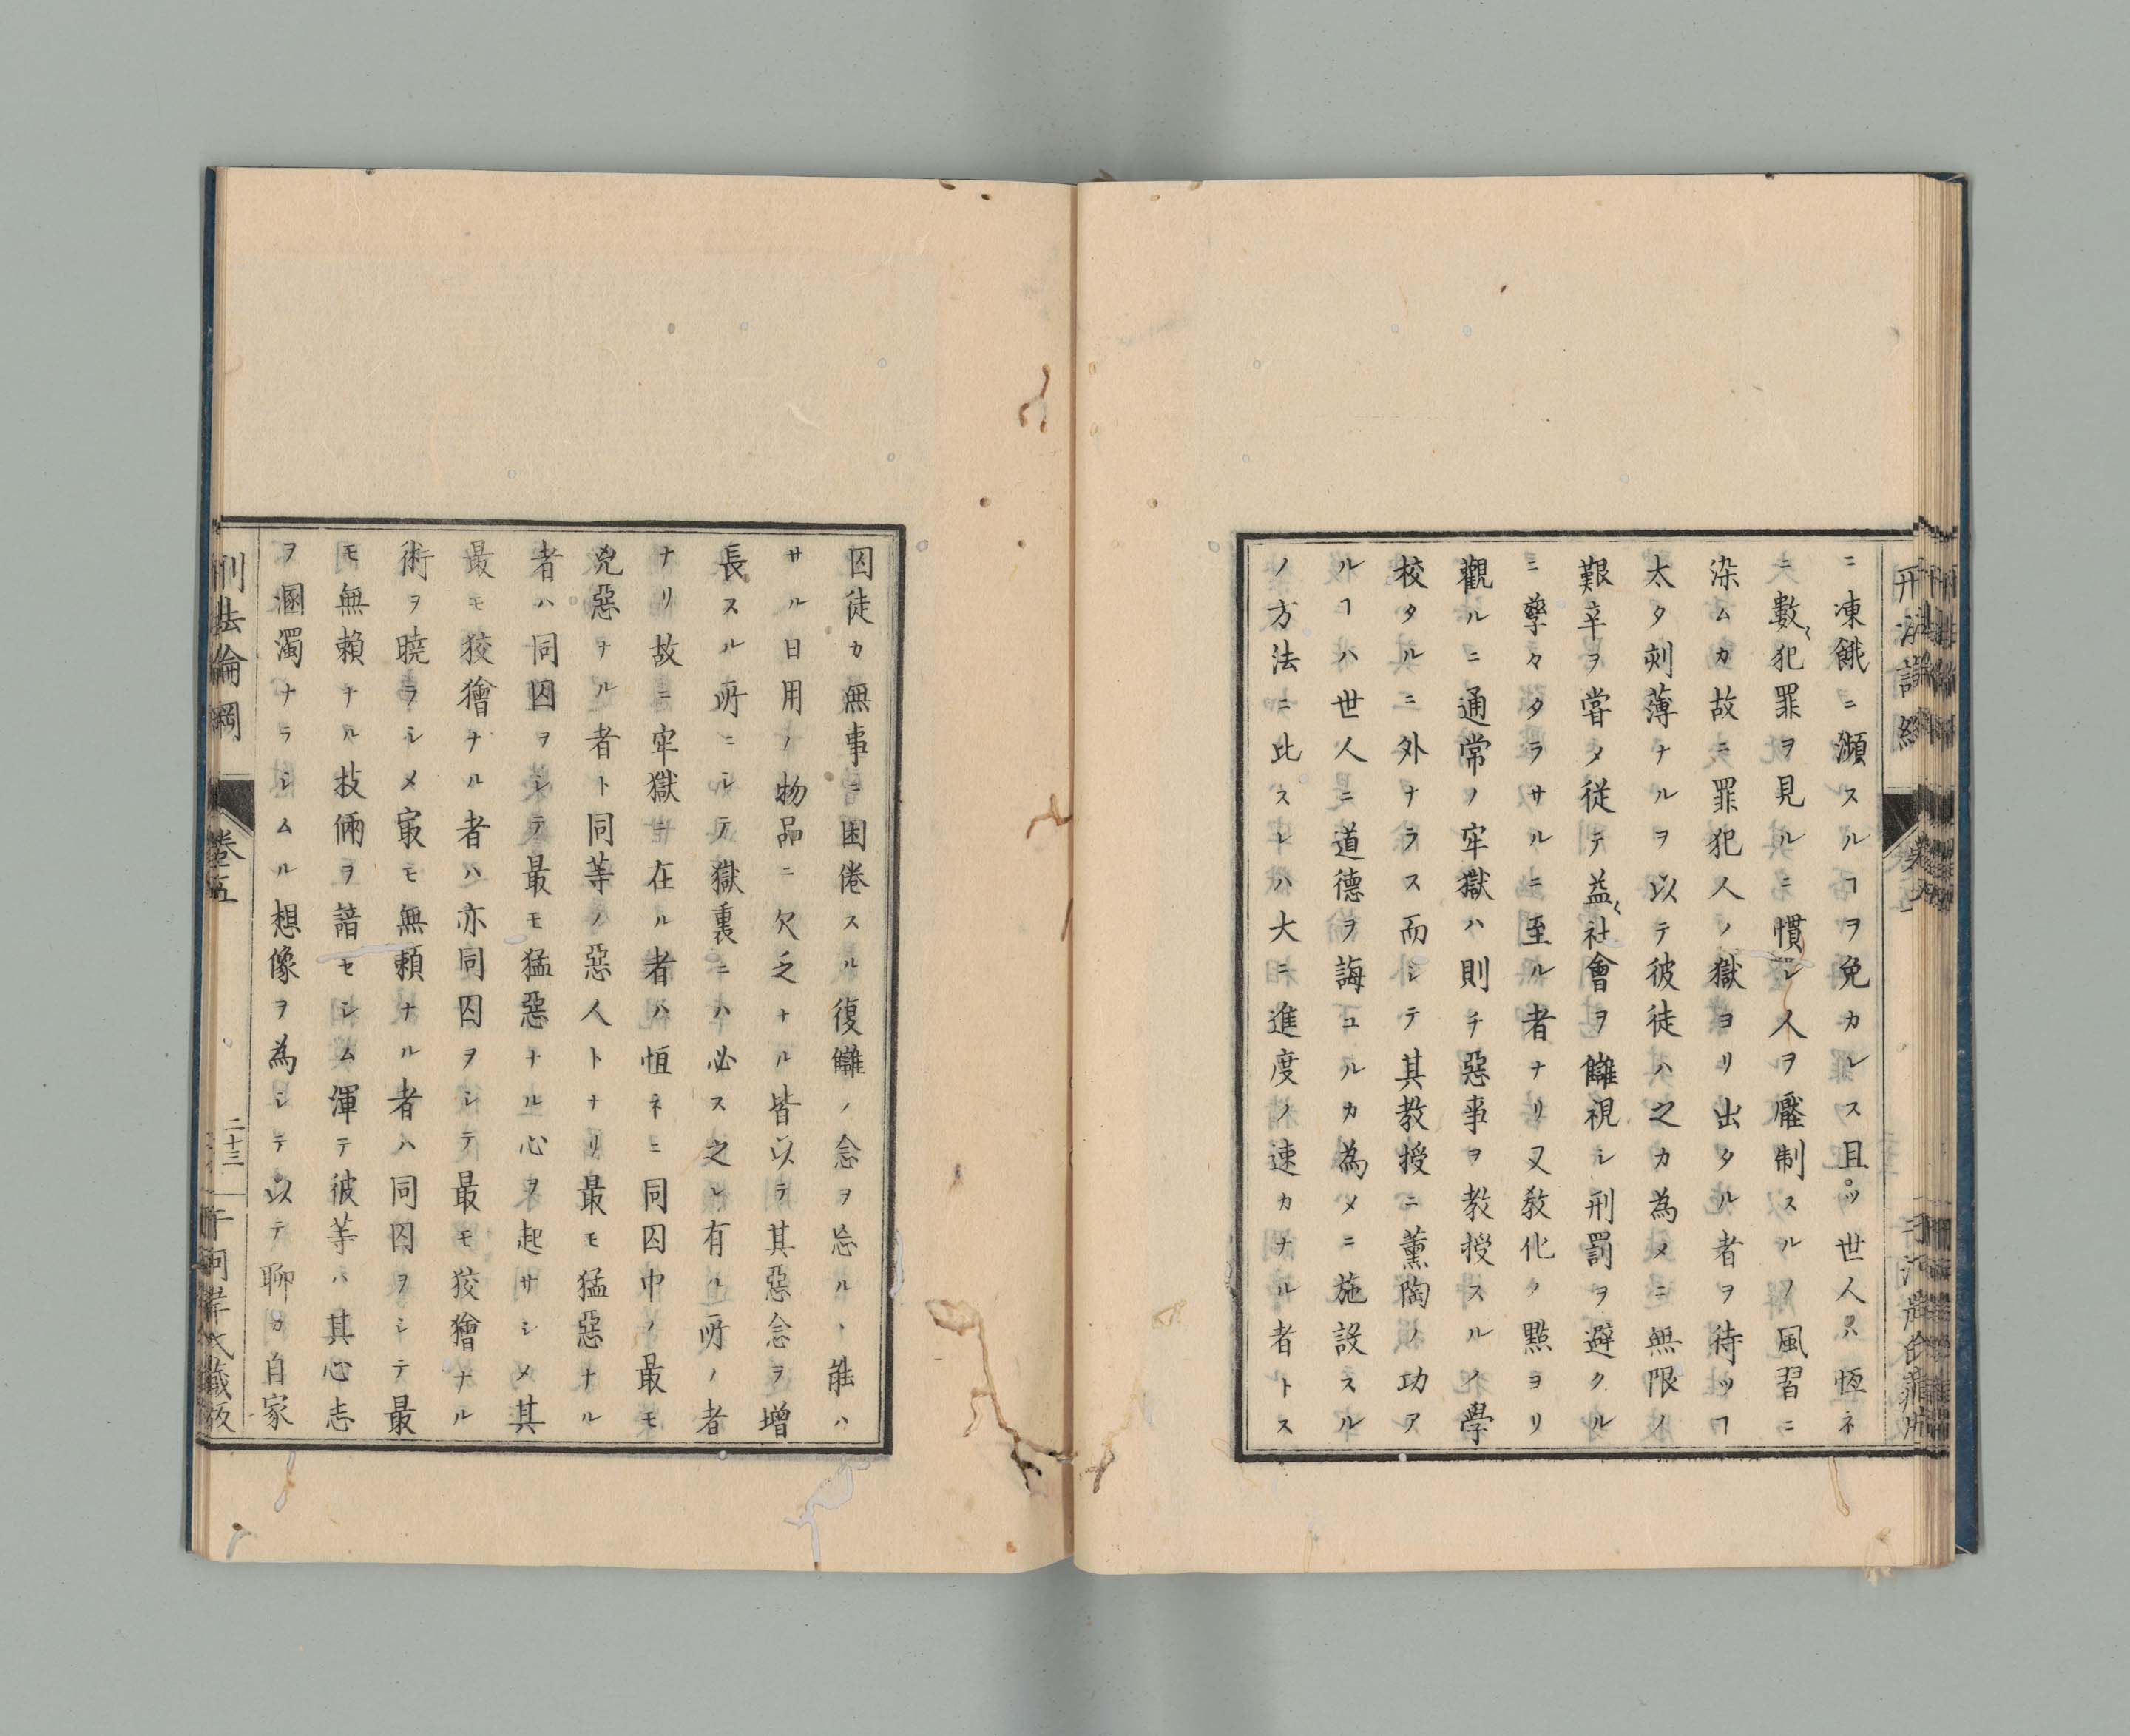 ニ凍餓ニ瀕スルヿヲ免カレス且ツ世人只恆ネ
ニ數〱犯罪ヲ見ルニ慣レ人ヲ壓制スルノ風習ニ
染ムカ故ニ罪犯人ノ獄ヨリ出タル者ヲ待ツヿ
太タ刻薄ナルヲ以テ彼徒ハ之カ為メニ無限ノ
艱辛ヲ甞タ従テ益〱社會ヲ讎視シ刑罰ヲ避クル
ニ孳々タラサルニ至ル者ナリ又教化ノ點ヨリ
觀ルニ通常ノ牢獄ハ則チ惡事ヲ教授スルノ學
校タルニ外ナラス而シテ其教授ニ薫陶ノ功ア
ルヿハ世人ニ道德ヲ誨ユルカ為メニ施設スル
ノ方法ニ比スレハ大ニ進度ノ速カナル者トス
囚徒カ無事ニ困倦スル復讎ノ念ヲ忘ルヽ能ハ
サル日用ノ物品ニ欠乏ナル皆以テ其惡念ヲ增
長スル所ニシテ獄裏ニハ必ス之レ有ル所ノ者
ナリ故ニ牢獄ニ在ル者ハ恒ネニ同囚中ノ最モ
兇惡ナル者ト同等ノ惡人トナリ最モ猛惡ナル
者ハ同囚ヲシテ最モ猛惡ナル心ヲ起サシメ其
最モ狡獪ナル者ハ亦同囚ヲシテ最モ狡獪ナル
術ヲ曉ラシメ㝡モ無頼ナル者ハ同囚ヲシテ最
モ無賴ナル技倆ヲ諳セシム渾テ彼等ハ其心志
ヲ溷濁ナラシムル想像ヲ為シテ以テ聊カ自家
刑法論綱
卷五
二十三